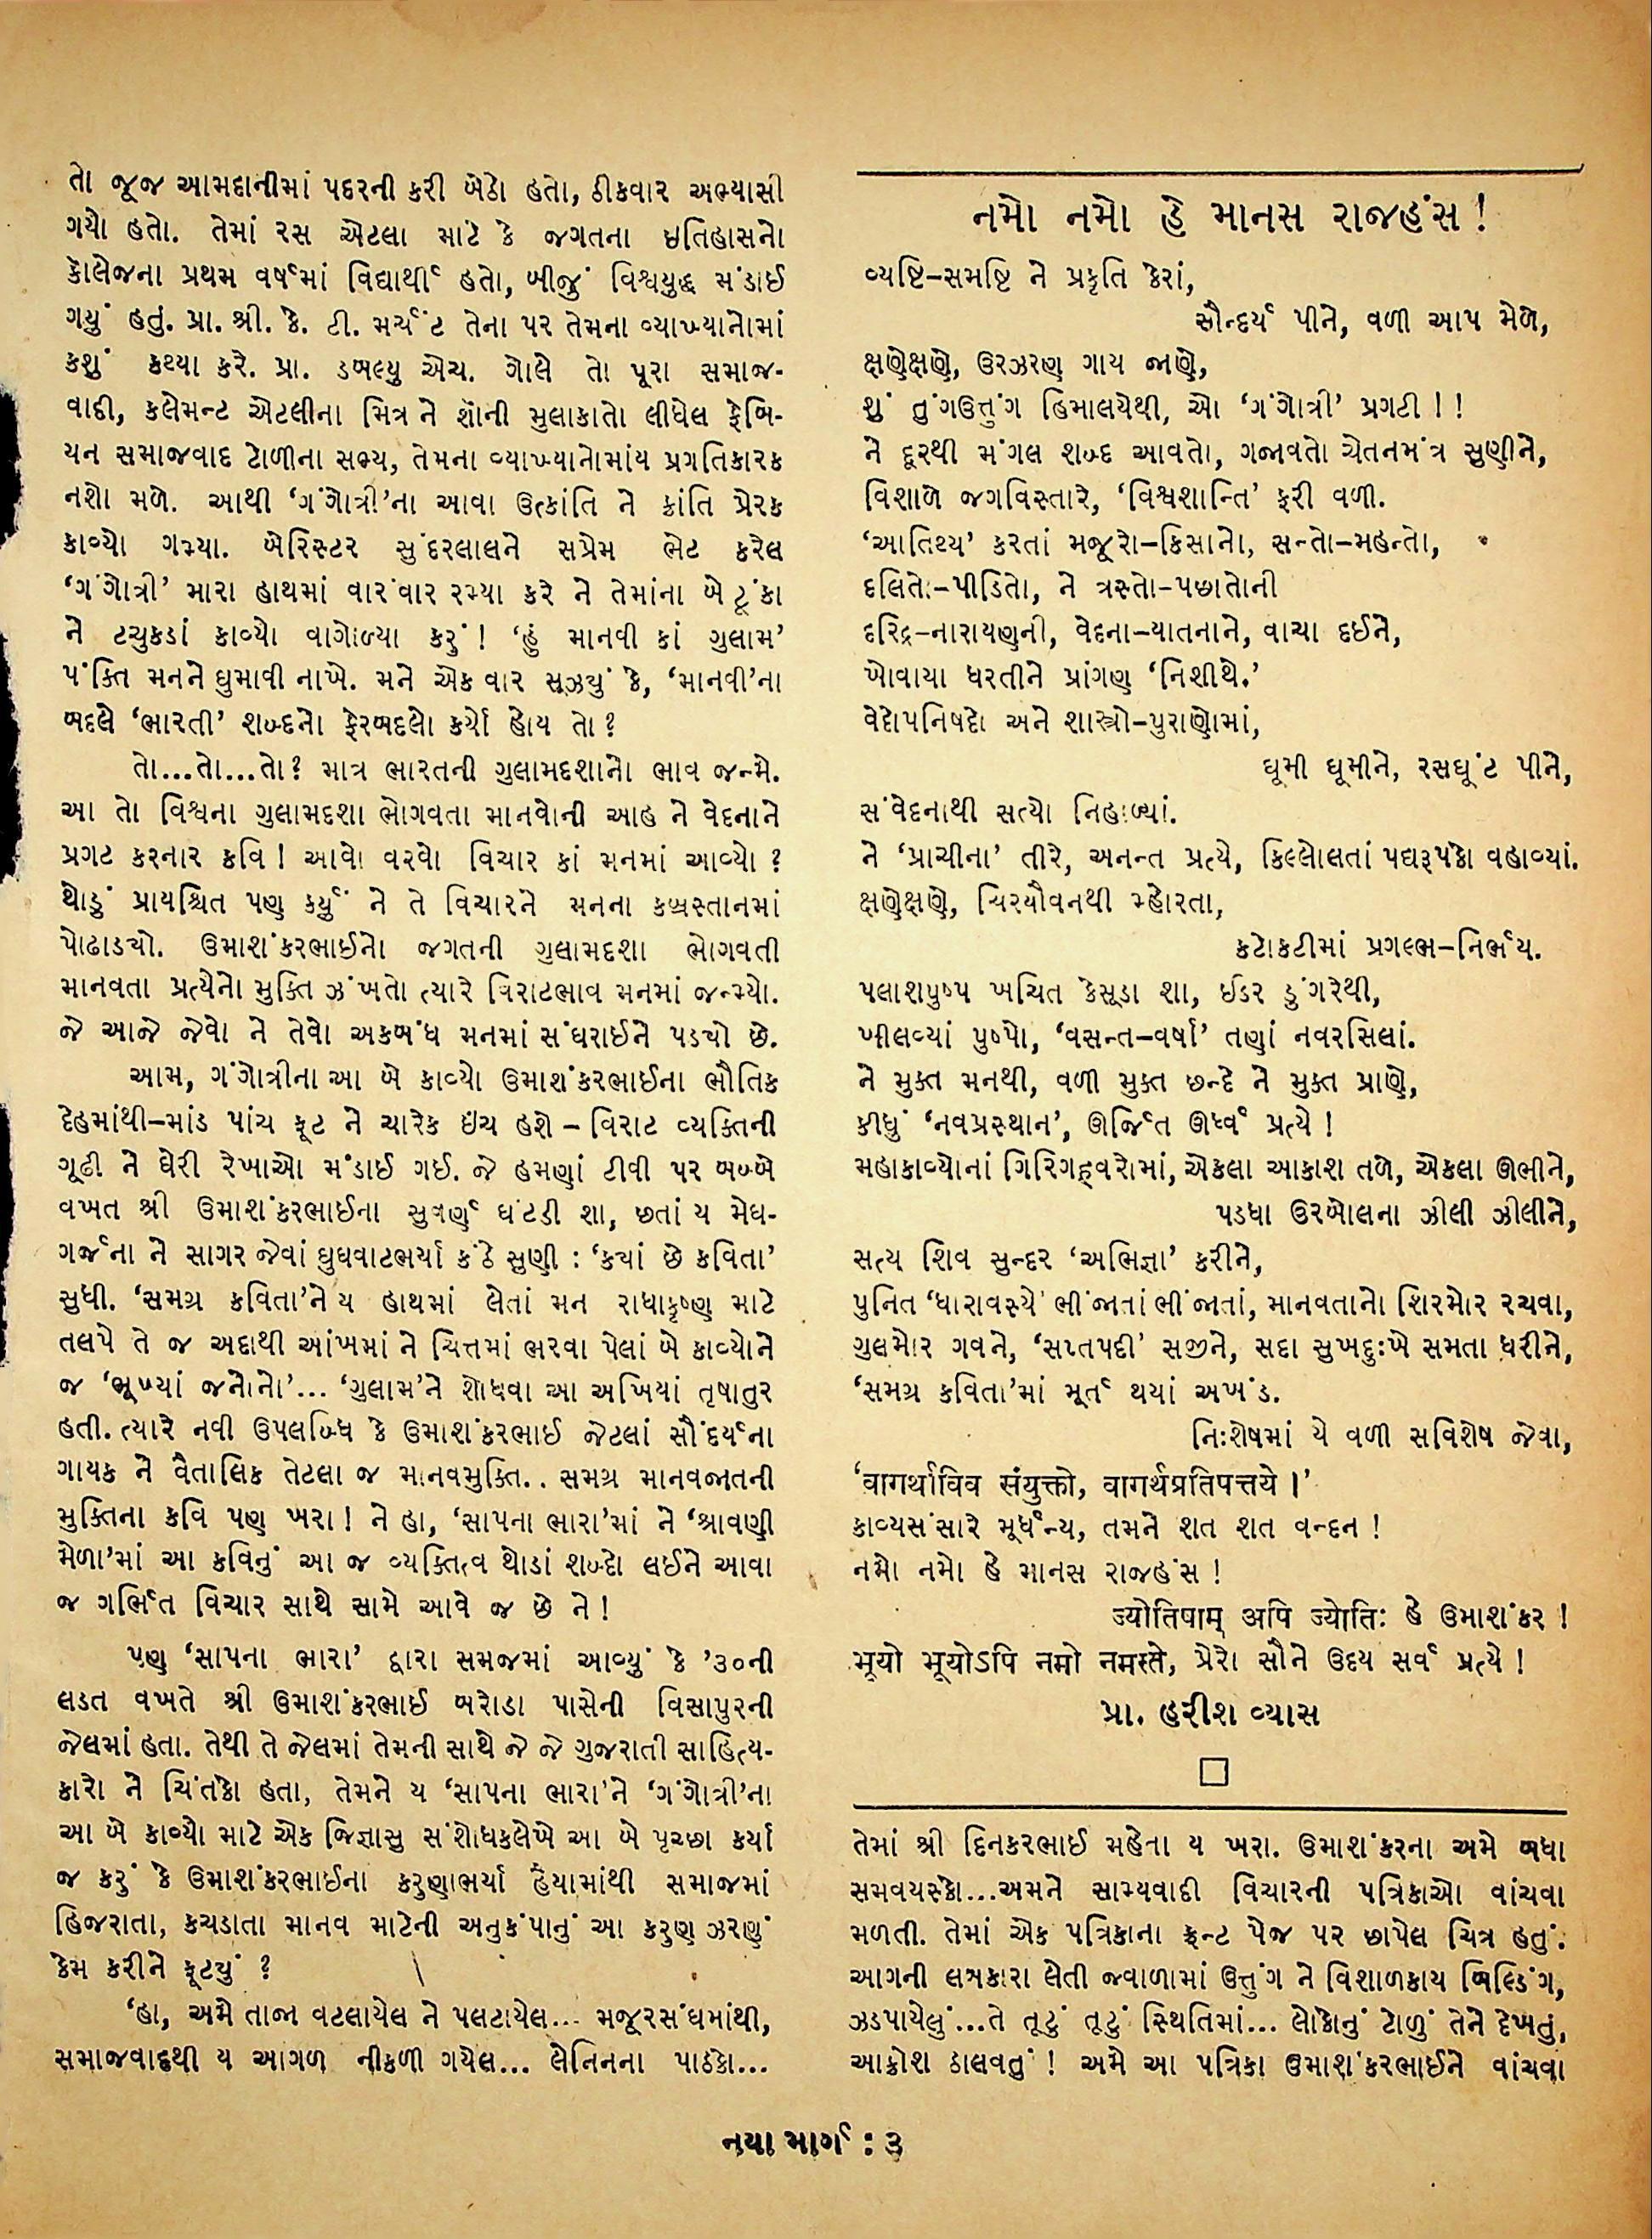 તો જૂજ આમદાનીમાં પદરની કરી બેઠો હતો, ઠીકવાર અભ્યાસી
ગયો હતો. તેમાં રસ એટલા માટે કે જગતના ઇતિહાસનો
કૉલેજના પ્રથમ વર્ષમાં વિદ્યાર્થી હતો, બીજું વિશ્વયુદ્ધ મંડાઈ
ગયું હતું. પ્રા. શ્રી. કે. ટી. મર્ચંટ તેના પર તેમના વ્યાખ્યાનોમાં
કશું કથ્યા કરે. પ્રા. ડબલ્યુ એચ. ગોલે તો પૂરા સમાજ-
વાદી, કલેમન્ટ એટલીના મિત્ર ને શૉની મુલાકાતો લીધેલ ફેબિ-
યન સમાજવાદ ટોળીના સભ્ય, તેમના વ્યાખ્યાનોમાંય પ્રગતિકારક
નશો મળે. આથી ‘ગંગોત્રી’ના આવા ઉત્કાંતિ ને ક્રાંતિ પ્રેરક
કાવ્યો ગમ્યા. બેરિસ્ટર સુંદરલાલને સપ્રેમ ભેટ કરેલ
‘ગંગોત્રી’ મારા હાથમાં વારંવાર રમ્યા કરે ને તેમાંના બે ટૂંકા
ને ટચુકડાં કાવ્યો વાગોળ્યા કરું ! ‘હું માનવી કાં ગુલામ’
પંક્તિ મનને ઘુમાવી નાખે. મને એક વાર સૂઝ્યું કે, ‘માનવી’ના
બદલે ‘ભારતી’ શબ્દનો ફેરબદલો કર્યો હોય તો ?
તો...તો...તો? માત્ર ભારતની ગુલામદશાનો ભાવ જન્મે.
આ તો વિશ્વના ગુલામદશા ભોગવતા માનવોની આહ ને વેદનાને
પ્રગટ કરનાર કવિ ! આવો વરવો વિચાર કાં મનમાં આવ્યો ?
થોડું પ્રાયશ્ચિત પણ કર્યું ને તે વિચારને મનના કબ્રસ્તાનમાં
પોઢાડ્યો. ઉમાશંકરભાઈનો જગતની ગુલામદશા ભોગવતી
માનવતા પ્રત્યેનો મુક્તિ ઝંખતો ત્યારે વિરાટભાવ મનમાં જન્મ્યો.
જે આજે જેવો ને તેવો અકબંધ મનમાં સંઘરાઈને પડ્યો છે.
આમ, ગંગોત્રીના આ બે કાવ્યો ઉમાશંકરભાઈના ભૌતિક
દેહમાંથી–માંડ પાંચ ફૂટ ને ચારેક ઇંચ હશે – વિરાટ વ્યક્તિની
ગૂઢી ને ઘેરી રેખાઓ મંડાઈ ગઈ. જે હમણાં ટીવી પર બબ્બે
વખત શ્રી ઉમાશંકરભાઈના સુવર્ણ ઘંટડી શા, છતાં ય મેઘ-
ગર્જના ને સાગર જેવાં ઘુઘવાટભર્યા કંઠે સુણી : ‘ક્યાં છે કવિતા’
સુધી. ‘સમગ્ર કવિતા’ને ય હાથમાં લેતાં મન રાધાકૃષ્ણ માટે
તલપે તે જ અદાથી આંખમાં ને ચિત્તમાં ભરવા પેલાં બે કાવ્યોને
જ ‘ભૂખ્યાં જનોનો’... ‘ગુલામ’ને શોધવા આ અખિયાં તૃષાતુર
હતી. ત્યારે નવી ઉપલબ્ધિ કે ઉમાશંકરભાઈ જેટલાં સૌંદર્યના
ગાયક ને વૈતાલિક તેટલા જ માનવમુક્તિ.. સમગ્ર માનવજાતની
મુક્તિના કવિ પણ ખરા ! ને હા, ‘સાપના ભારા’માં ને ‘શ્રાવણી
મેળા’માં આ કવિનું આ જ વ્યક્તિત્વ થોડાં શબ્દો લઈને આવા
જ ગર્ભિત વિચાર સાથે સામે આવે જ છે ને !
પણ ‘સાપના ભારા’ દ્વારા સમજમાં આવ્યું કે ’૩૦ની
લડત વખતે શ્રી ઉમાશંકરભાઈ બરોડા પાસેની વિસાપુરની
જેલમાં હતા. તેથી તે જેલમાં તેમની સાથે જે જે ગુજરાતી સાહિત્ય-
કારો ને ચિંતકો હતા, તેમને ય ‘સાપના ભારા’ને ‘ગંગોત્રી’ના
આ બે કાવ્યો માટે એક જિજ્ઞાસુ સંશોધકલેખે આ બે પૃચ્છા કર્યા
જ કરું કે ઉમાશંકરભાઈના કરુણાભર્યા હૈયામાંથી સમાજમાં
હિજરાતા, કચડાતા માનવ માટેની અનુકંપાનું આ કરુણ ઝરણું
કેમ કરીને ફૂટ્યું ?
‘હા, અમે તાજા વટલાયેલ ને પલટાયેલ... મજૂરસંઘમાંથી,
સમાજવાદથી ય આગળ નીકળી ગયેલ... લેનિનના પાઠકો...
નમો નમો હે માનસ રાજહંસ !
વ્યષ્ટિ–સમષ્ટિ ને પ્રકૃતિ કેરાં,
સૌન્દર્ય પીને, વળી આપ મેળે,
ક્ષણેક્ષણે, ઉરઝરણ ગાય જાણે,
શું તુંગઉત્તુંગ હિમાલયેથી, ઓ ‘ગંગોત્રી’ પ્રગટી ! !
ને દૂરથી મંગલ શબ્દ આવતો, ગજાવતો ચેતનમંત્ર સુણીને,
વિશાળે જગવિસ્તારે, ‘વિશ્વશાન્તિ’ ફરી વળી.
‘આતિથ્ય’ કરતાં મજૂરો–કિસાનો, સન્તો–મહન્તો,
દલિતો–પીડિતો, ને ત્રસ્તો–પછાતોની
દરિદ્ર–નારાયણની, વેદના–યાતનાને, વાચા દઈને,
ખોવાયા ધરતીને પ્રાંગણ ‘નિશીથે.’
વેદોપનિષદો અને શાસ્ત્રો–પુરાણોમાં,
ઘૂમી ઘૂમીને, રસઘૂંટ પીને,
સંવેદનાથી સત્યો નિહાળ્યાં.
ને ‘પ્રાચીના’ તીરે, અનન્ત પ્રત્યે, કિલ્લોલતાં પદ્યરૂપકો વહાવ્યાં.
ક્ષણેક્ષણે, ચિરયૌવનથી મ્હોરતા,
કટોકટીમાં પ્રગલ્ભ–નિર્ભય.
પલાશપુષ્પ ખચિત કેસૂડા શા, ઈડર ડુંગરેથી,
ખીલવ્યાં પુષ્પો, ‘વસન્ત–વર્ષા’ તણાં નવરસિલાં.
ને મુક્ત મનથી, વળી મુક્ત છન્દે ને મુક્ત પ્રાણે,
કીધું ‘નવપ્રસ્થાન’, ઊર્જિત ઊર્ધ્વ પ્રત્યે !
મહાકાવ્યોનાં ગિરિગહ્વરોમાં, એકલા આકાશ તળે, એકલા ઊભીને,
પડઘા ઉરબોલના ઝીલી ઝીલીને,
સત્ય શિવ સુન્દર ‘અભિજ્ઞા’ કરીને,
પુનિત ‘ધારાવસ્ત્રે’ ભીંજાતાં ભીંજાતાં, માનવતાનો શિરમોર રચવા,
ગુલમોર ગવને, ‘સપ્તપદી’ સજીને, સદા સુખદુઃખે સમતા ધરીને,
‘સમગ્ર કવિતા’માં મૂર્ત થયાં અખંડ.
નિઃશેષમાં યે વળી સવિશેષ જેવા,
‘वागर्थाविव संयुक्तो, वागर्थप्रतिपत्तये ।’
કાવ્યસંસારે મૂર્ધન્ય, તમને શત શત વન્દન !
નમો નમો હે માનસ રાજહંસ !
ज्योतिषाम् अपि ज्योतिः હે ઉમાશંકર !
भूयो भूयोऽपि नमो नमस्ते, પ્રેરો સૌને ઉદય સર્વ પ્રત્યે !
પ્રા. હરીશ વ્યાસ
તેમાં શ્રી દિનકરભાઈ મહેતા ય ખરા. ઉમાશંકરના અમે બધા
સમવયસ્કો...અમને સામ્યવાદી વિચારની પત્રિકાઓ વાંચવા
મળતી. તેમાં એક પત્રિકાના ફ્રન્ટ પેજ પર છાપેલ ચિત્ર હતું:
આગની લબકારા લેતી જ્વાળામાં ઉત્તુંગ ને વિશાળકાય બિલ્ડિંગ,
ઝડપાયેલું...તે તૂટું તૂટું સ્થિતિમાં... લોકોનું ટોળું તેને દેખતું,
આક્રોશ ઠાલવતું ! અમે આ પત્રિકા ઉમાશંકરભાઈને વાંચવા
નયા માર્ગ : ૩